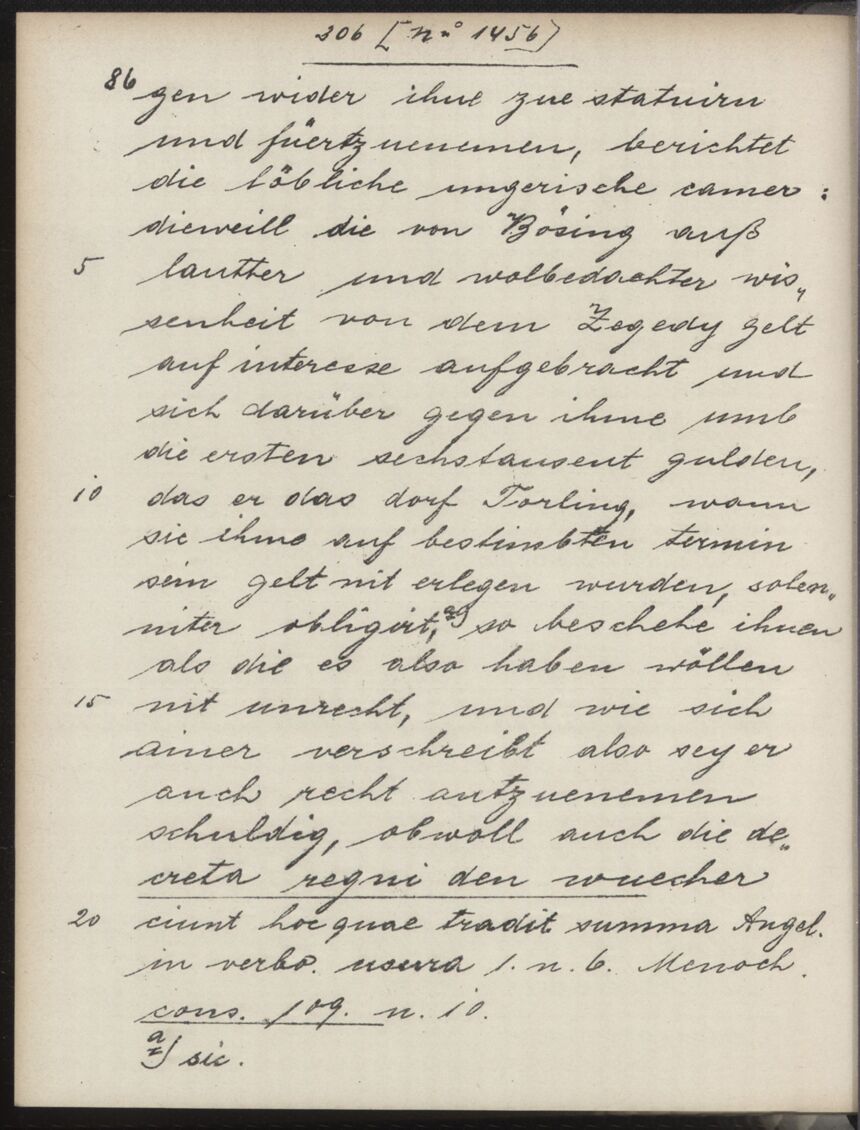 306 [nº 1456]
86 gen wider ihne zue statuirn
und füertzuenemen, berichtet
die löbliche ungerische camer:
dieweill die von Bösing auß
5 lautter und wolbedachter wis„
senheit von dem Zegedy gelt
auf interesse aufgebracht und
sich darüber gegen ihme umb
die ersten sechstausent gulden,
10 das er das dorf Torling, wann
sie ihme auf bestimbten termin
sein gelt nit erlegen wurden, solen„
niter obligirt, a) so beschehe ihnen
als die es also haben wöllen
15 nit unrecht, und wie sich
ainer verschreibt also sey er
auch recht autzuenemen
schuldig, obwoll auch die de„
creta regni den wuecher
20 ciunt hoc quae tradit summa Angel.
in verbo. usura 1. n. 6. Menoch.
cons. 109. n. 10.
a) sic.